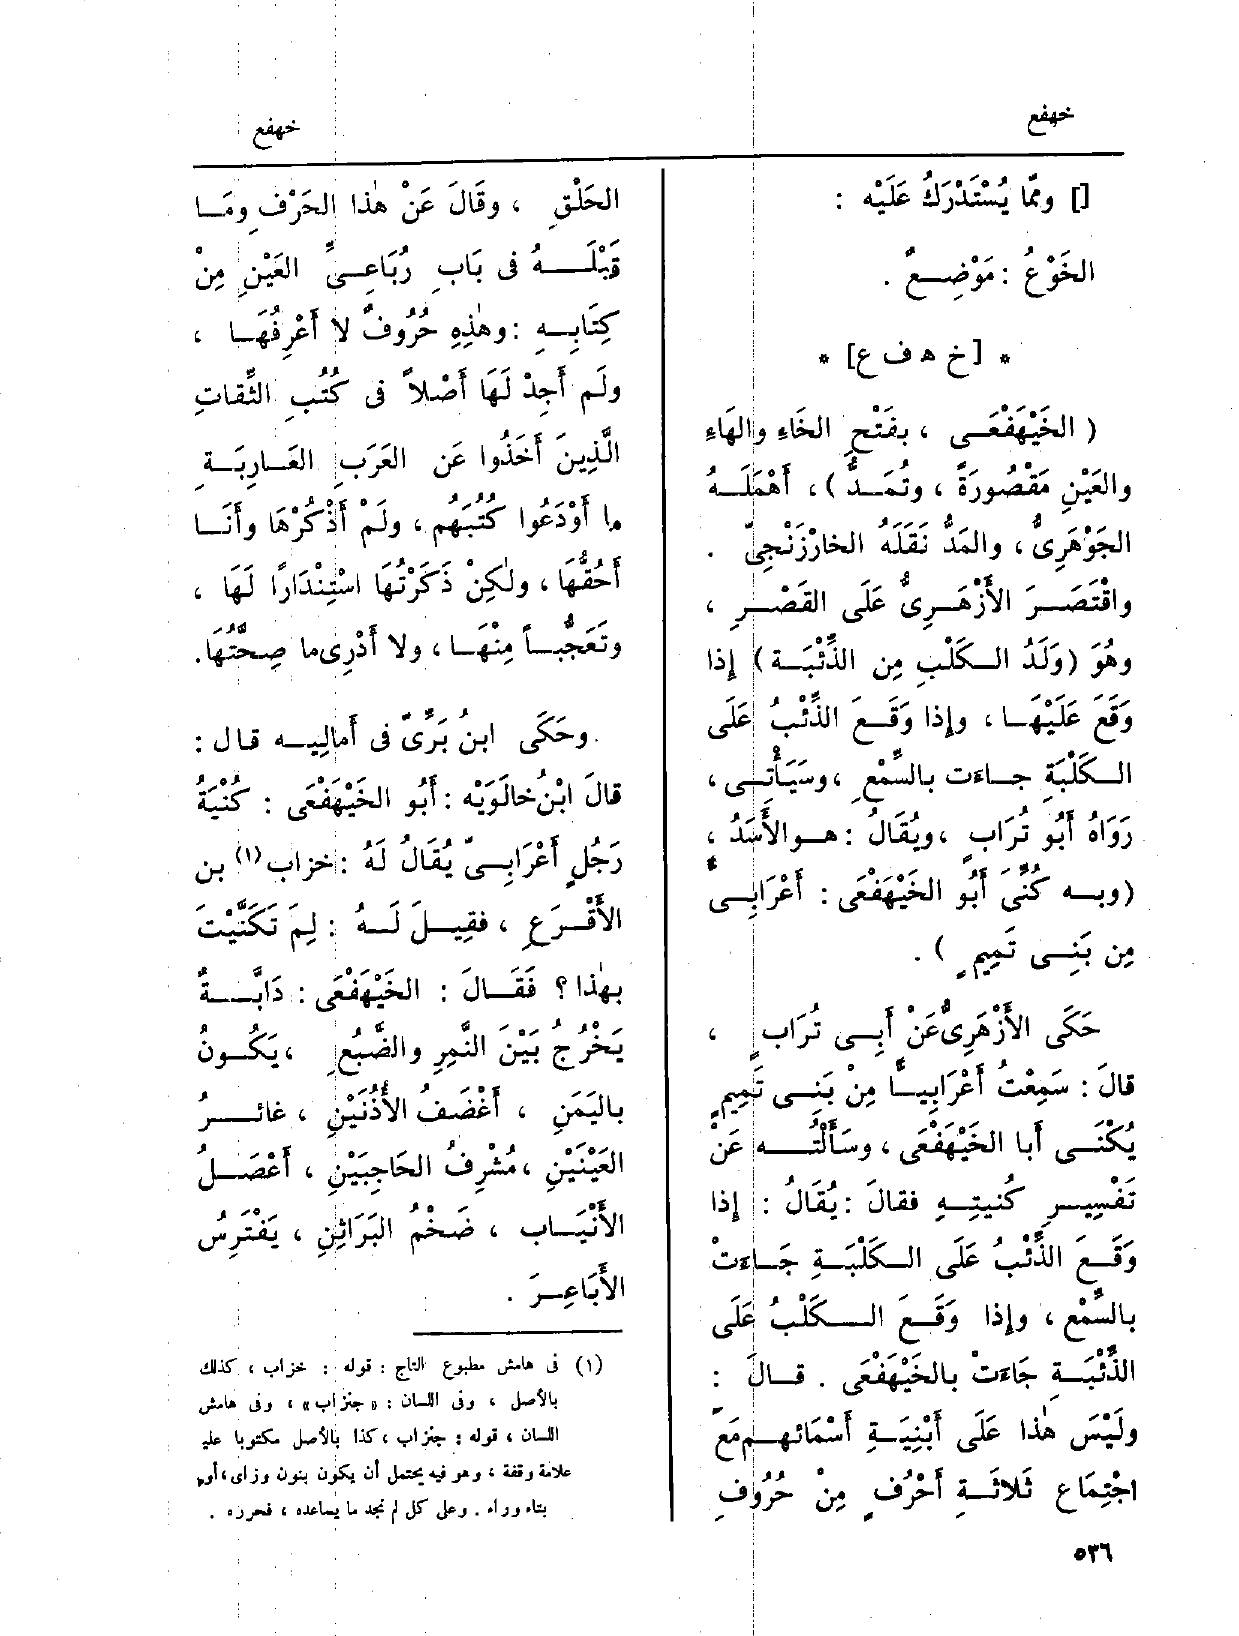 خهفع
خهفع
[] ومّما يُسْتَدْرَكُ عَلَيْه :
الخَوْعُ : مَوْضِعٌ .
* [خ ه ف ع] *
( الخَيْهَفْعَى ، بفَتْحِ الخَاءِ والهَاءِ
والعَيْنِ مَقْصُورَةً ، وتُمَدُّ ) ، أَهْمَلَهُ
الجَوْهَرِىُّ ، والمَدُّ نَقَلَهُ الخارْزَنْجِىّ .
واقْتَصَرَ الأَزْهَرِىُّ عَلَى القَصْرِ ،
وهُوَ (وَلَدُ الكَلْبِ مِن الذِّئْبَة) إذا
وَقَعَ عَلَيْهَا ، وإذا وَقَعَ الذِّئْبُ عَلَى
الكَلْبَةِ جاءَت بالسِّمْعِ ، وسَيَأْتِى ،
رَوَاهُ أَبُو تُرَابٍ ، ويُقَالُ : هو الأَسَدُ ،
(وبه كُنِّىَ أَبُو الخَيْهَفْعَى : أَعْرَابِىٌّ
مِن بَنِى تَمِيمٍ ) .
حَكَى الأَزْهَرِىُّ عَنْ أَبِى تُرَابٍ ،
قالَ : سَمِعْتُ أَعْرَابِيًّا مِنْ بَنِى تَمِيمٍ
يُكْنَى أبا الخَيْهَفْعَى ، وسَأَلْتُه عَنْ
تَفْسِيرِ كُنيتِهِ فقالَ : يُقَالُ : إذا
وَقَعَ الذِّئْبُ عَلَى الكَلْبَةِ جَاءَتْ
بالسِّمْع ، وإذا وَقَعَ الكَلْبُ عَلَى
الذِّئْبَة جَاءَتْ بالخَيْهَفْعَى . قالَ :
ولَيْسَ هٰذا عَلَى أَبْنِيَةِ أَسْمَائهِم مَعَ
اجْتِمَاعِ ثَلاثَةِ أَحْرُفٍ مِنْ حُرُوفِ
الحَلْقِ ، وقَالَ عَنْ هٰذا الحَرْفِ ومَا
قَبْلَهُ فى بَابِ رُبَاعِىِّ العَيْنِ مِنْ
كِتَابِهِ : وهٰذِهِ حُرُوفٌ لا أَعْرِفُهَا ،
ولَم أَجِدْ لَهَا أَصْلاً فى كُتُبِ الثِّقاتِ
الَّذِينَ أَخَذُوا عَن العَرَبِ العَارِبَةِ
ما أَوْدَعُوا كُتُبَهُم ، ولَمْ أَذْكُرْهَا وأَنَا
أَحُقُّهَا ، ولٰكِنْ ذَكَرْتُهَا اسْتِنْدَارًا لَهَا ،
وتَعَجُّباً مِنْهَا ، ولا أَدْرِى ما صِحَّتُهَا .
وحَكَى ابنُ بَرِّىّ فى أَمالِيه قال :
قالَ ابْنُ خالَوَيْه : أَبُو الخَيْهَفْعَى : كُنْيَةُ
رَجُلٍ أَعْرَابِىّ يُقَالُ لَهُ : خزاب (١) بن
الأَقْرَعِ ، فقِيلَ لَهُ : لِمَ تَكَنَّيْتَ
بهٰذا ؟ فَقَالَ : الخَيْهَفْعَى : دَابَّةٌ
يَخْرُجُ بَيْنَ النَّمِرِ والضَّبُعِ ، يَكُونُ
بالَيمَنِ ، أَغْضَفُ الأُذُنَيْنِ ، غائرُ
العَيْنَيْنِ ، مُشْرِفُ الحَاجِبَيْنِ ، أَعْصَلُ
الأَنْيَاب ، ضَخْم البَرَاثِنِ ، يَفْتَرِسُ
الأَبَاعِرَ .
(١) فى هامش مطبوع التاج : قوله : خزاب ، كذلك
بالأصل ، وفى اللسان : « جنزاب » ، وفى هامش
اللسان ، قوله : جنزاب ، كذا بالأصل مكتوبا عليه
علامة وقفة ، وهو فيه يحتمل أن يكون بنون وزاى ، أو
بتاء وراء . وعلى كل لم نجد ما يساعده ، فحرره .
٥٣٦